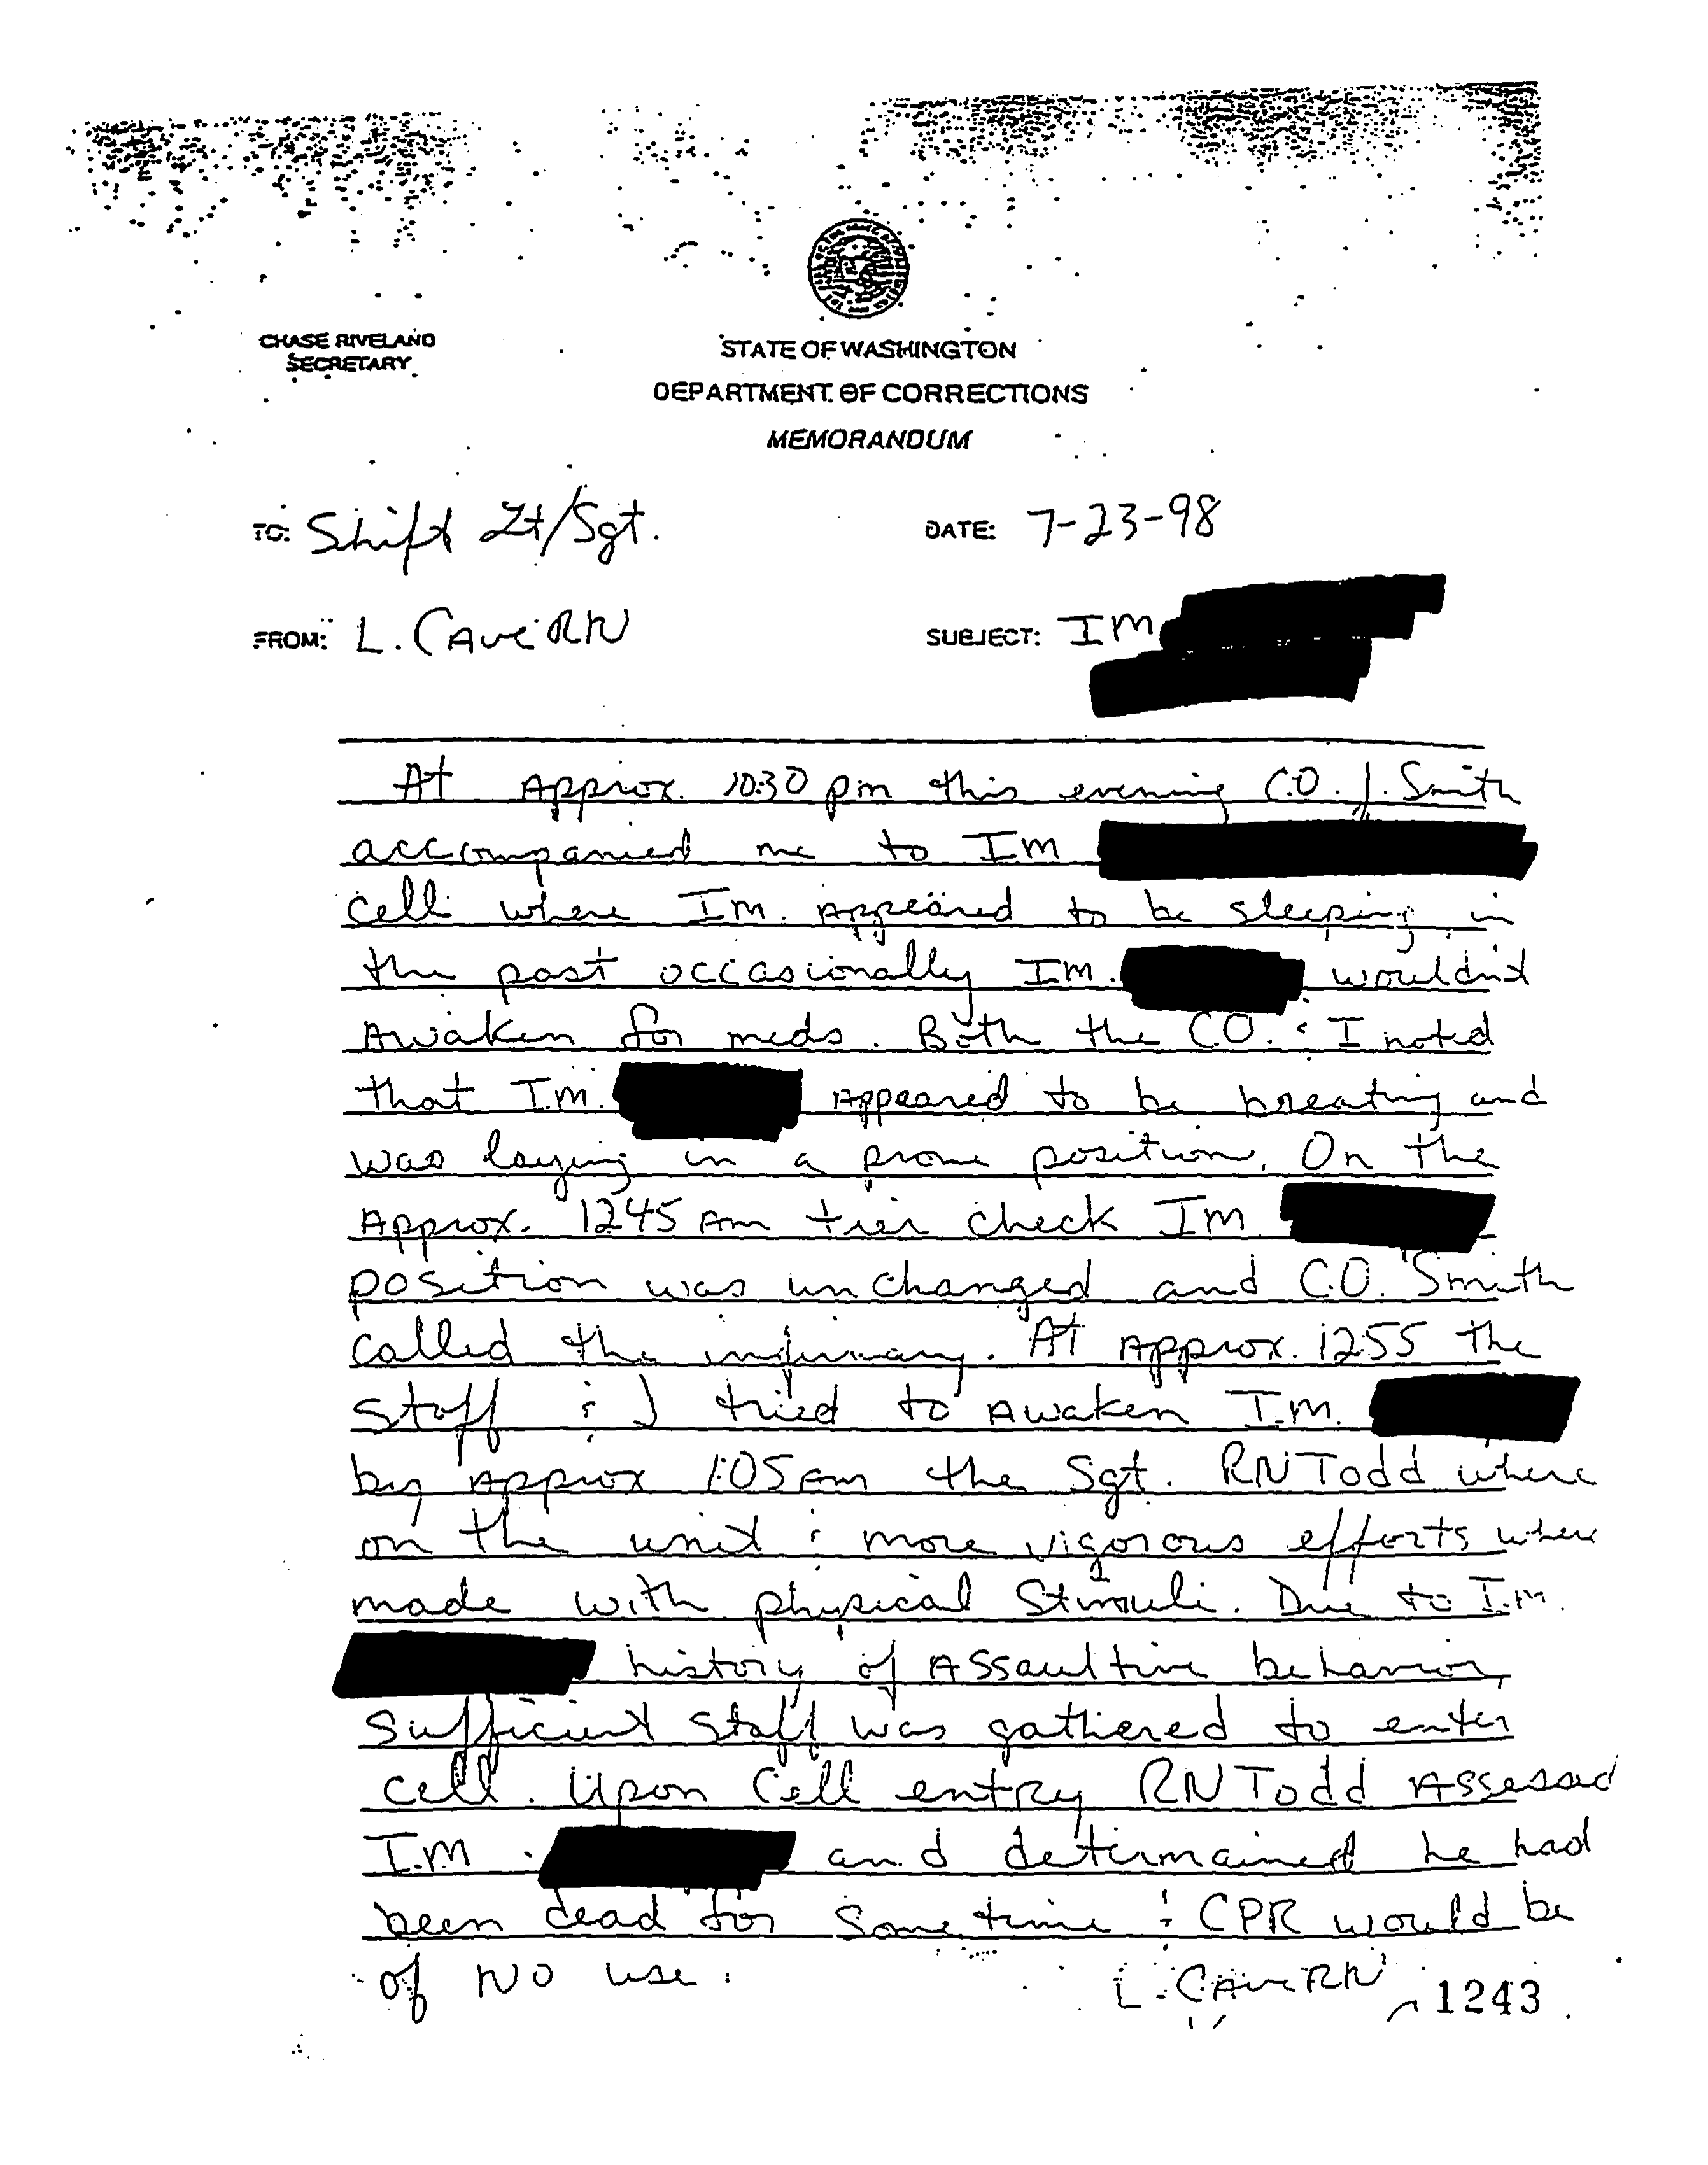 CHASE RIVELAND
SECRETARY
STATE OF WASHINGTON
DEPARTMENT OF CORRECTIONS
MEMORANDUM
TO: Shift Lt/Sgt. DATE: 7-23-98
FROM: L. CAVERN SUBJECT: IM
At Approx. 10:30 pm this evening C.O. J. Smith
accompanied me to IM
cell where I.M. Appeared to be sleeping in
the past occasionally I.M. wouldn't
Awaken for meds. Both the C.O. & I noted
that I.M. Appeared to be breating and
was laying in a prone position. On the
Approx. 1245 Am tier check IM
position was unchanged and C.O. Smith
called the infirmary. At Approx. 1255 the
staff & I tried to Awaken I.M.
by Approx 1:05 Am the Sgt. RN Todd where
on the unit & more vigorous efforts where
made with physical Stimuli. Due to I.M.
history of Assaultive behavior,
sufficient staff was gathered to enter
cell. Upon Cell entry RN Todd Assessed
I.M. and determained he had
been dead for some time & CPR would be
of NO use.
L. CAVERN 1243